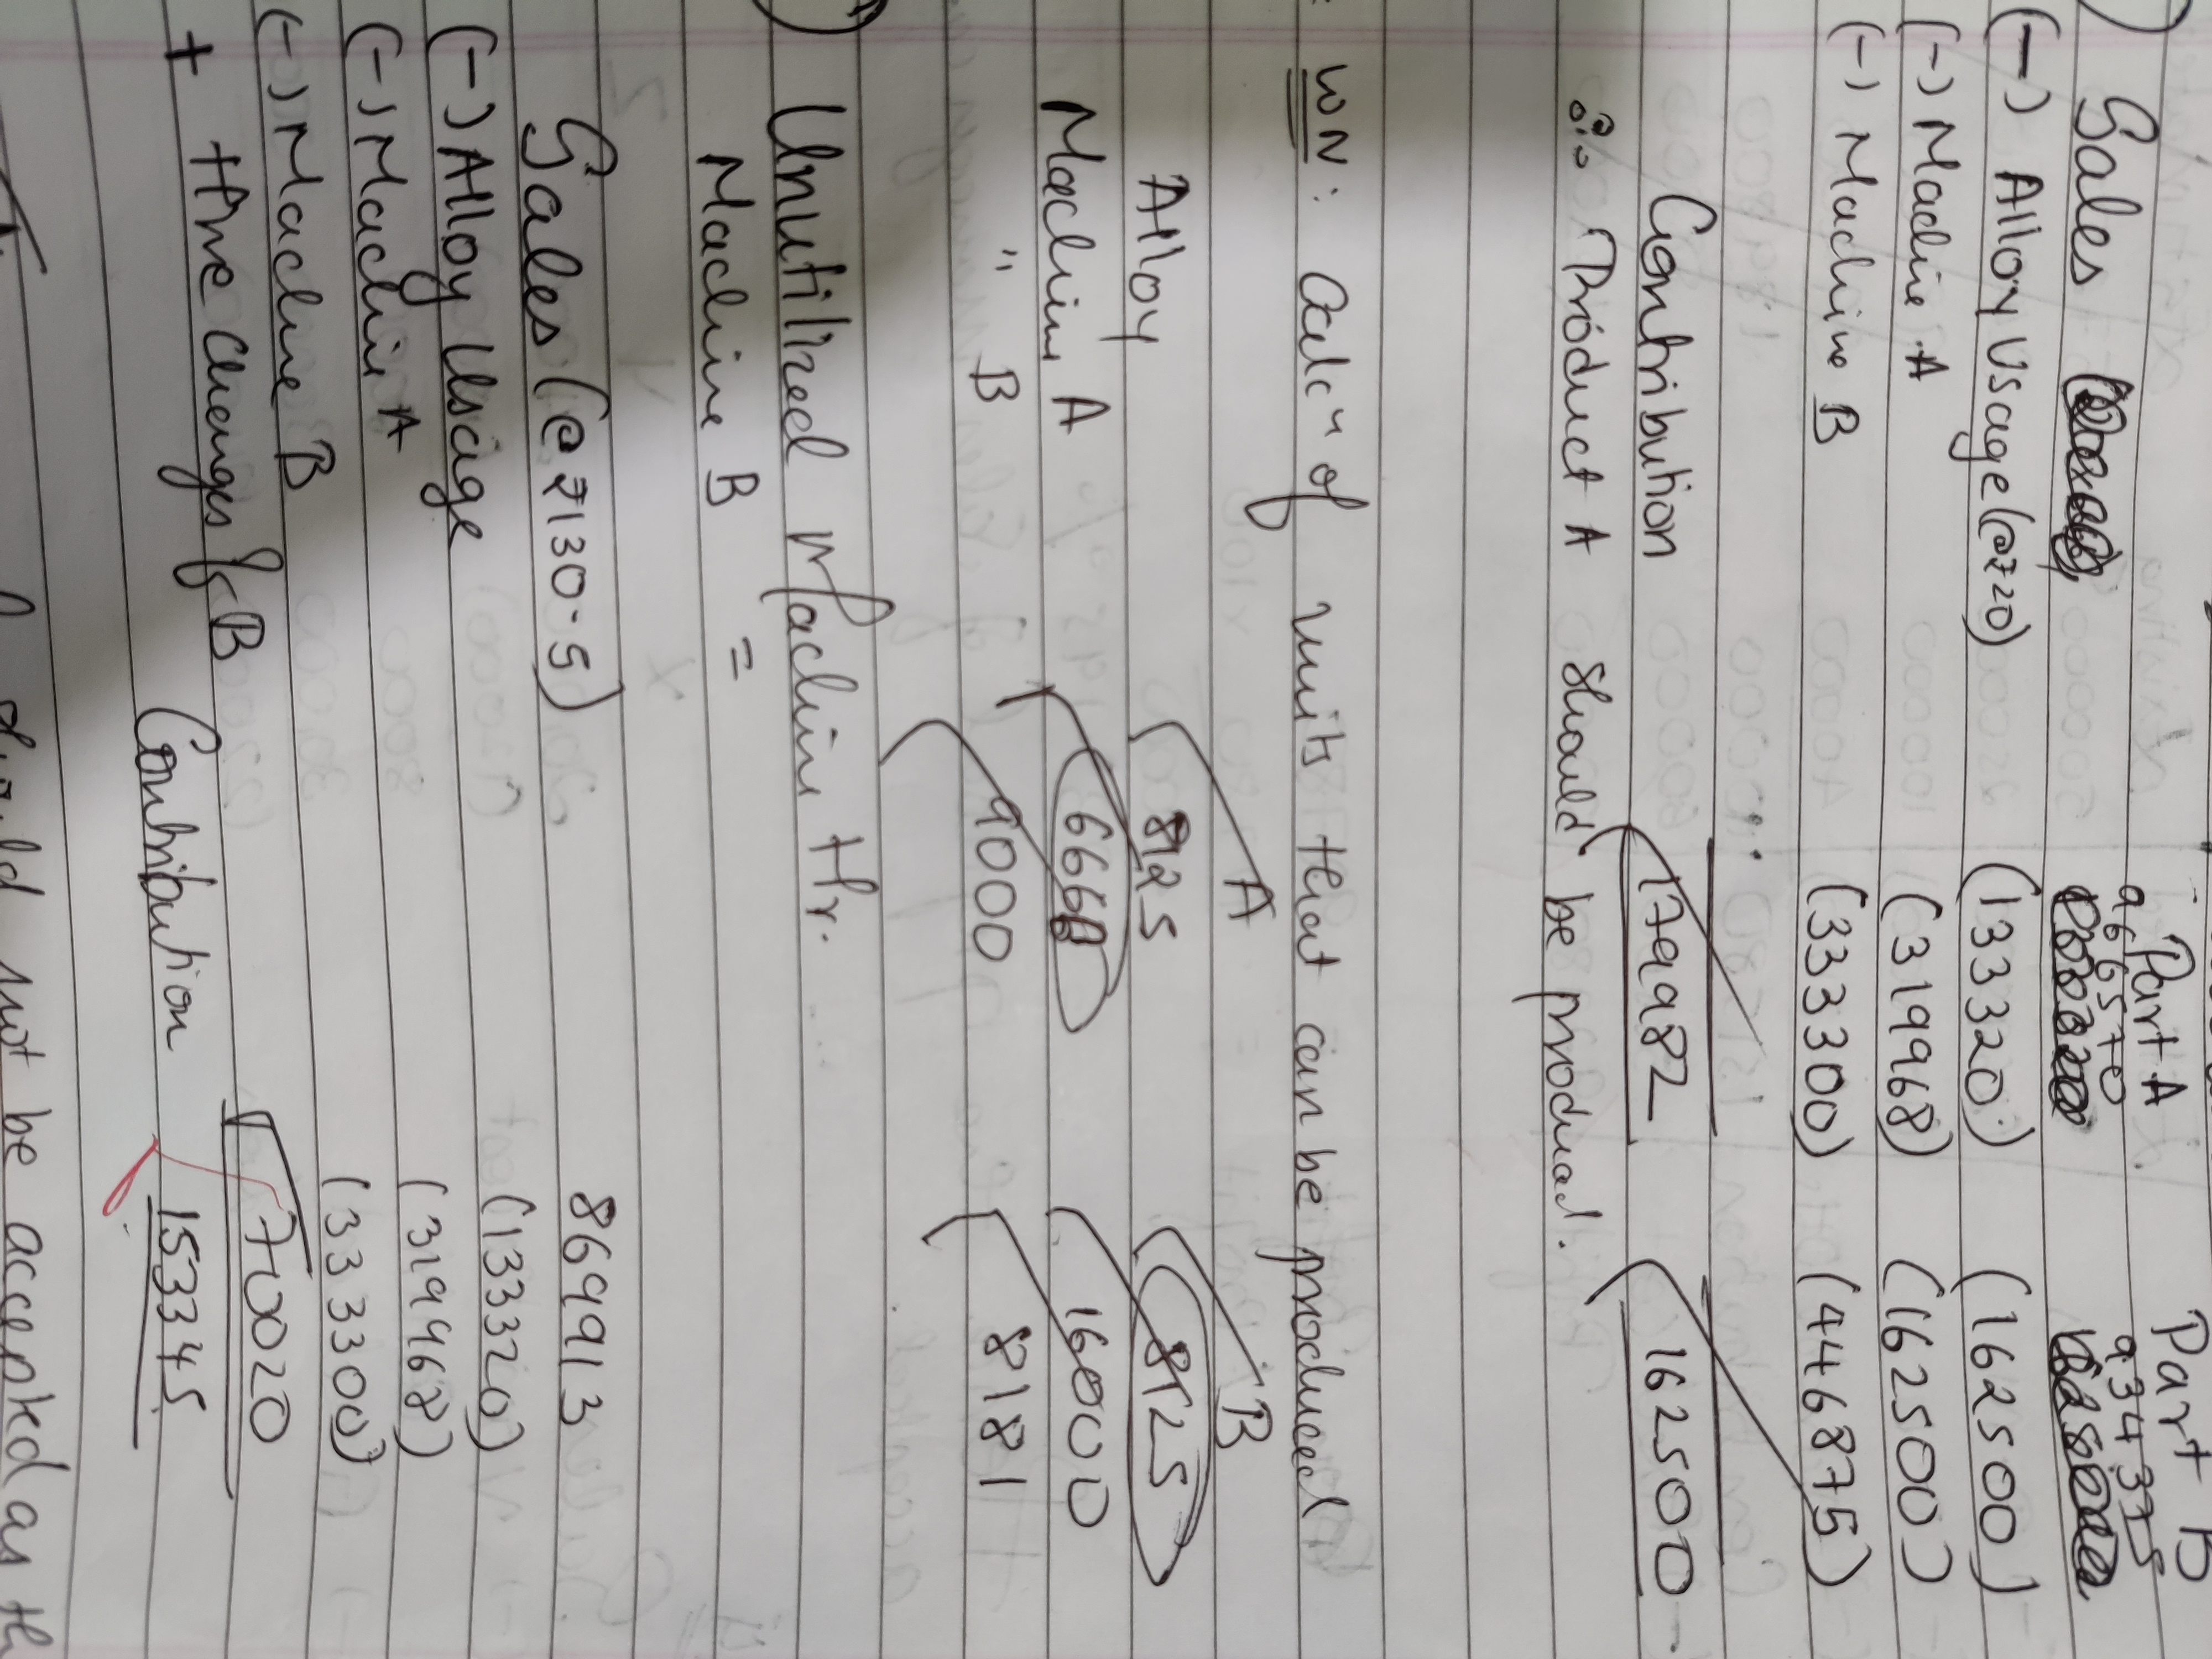 Part A Part B
Sales 966570 934375
(-) Alloy Usage (@₹20) (133320) (162500)
(-) Machine A (319968) (162500)
(-) Machine B (333300) (446875)
Contribution 179982 162500
∴ Product A should be produced.
WN: Calcⁿ of units that can be produced
A B
Alloy 8125 8125
Machine A 6666 16000
" B 9000 8181
Unutilized Machine Hr.
Machine B =
Sales (@₹130.5) 869913
(-) Alloy Usage (133320)
(-) Machine A (319968)
(-) Machine B (333300)
+ Hire Charges of B 70020
Contribution 153345
should not be accepted as th